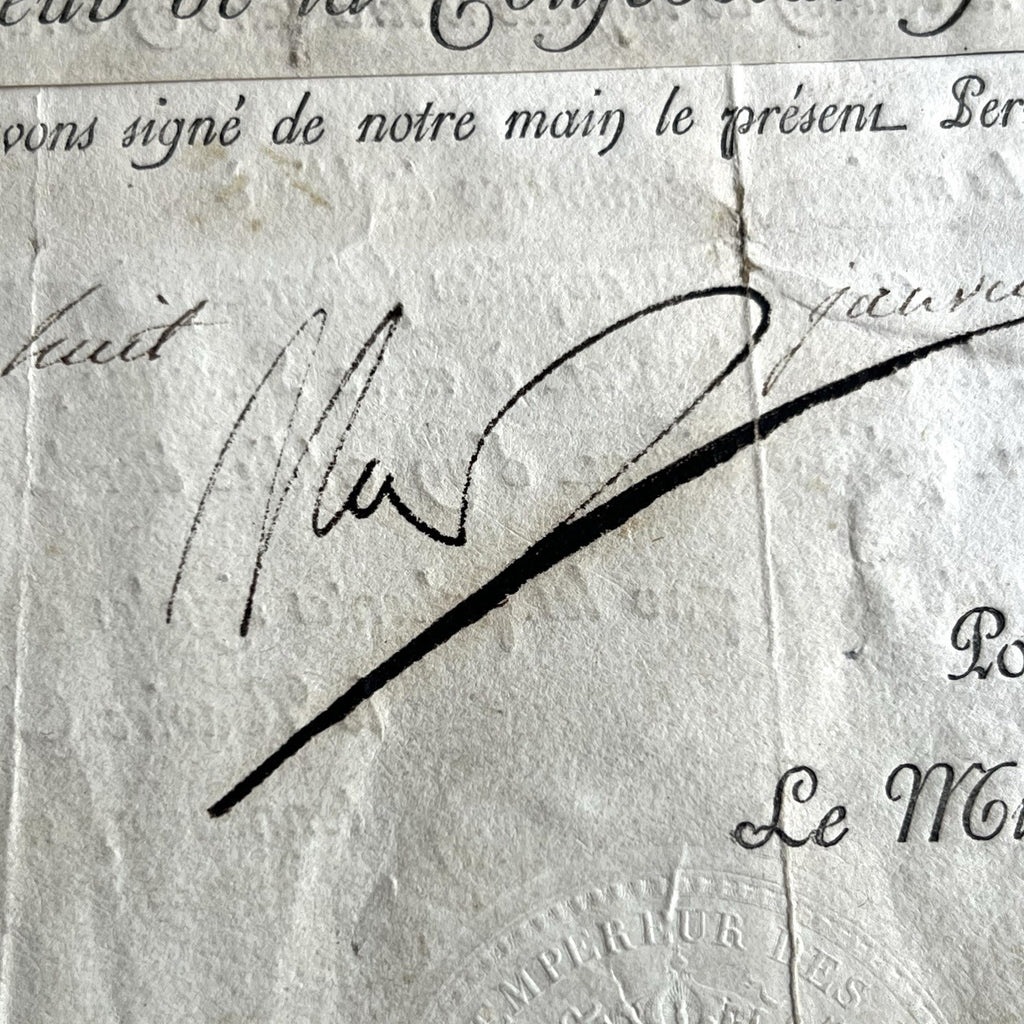 de la
signé de notre main le présent Per
huit Nap janvie
Po
Le Mi
EMPEREUR DES